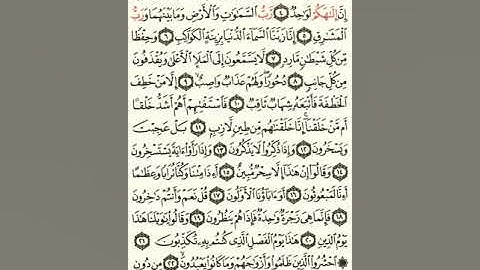 إِنَّ إِلَٰهَكُمْ لَوَٰحِدٌ ٤ رَّبُّ ٱلسَّمَٰوَٰتِ وَٱلْأَرْضِ وَمَا بَيْنَهُمَا وَرَبُّ
ٱلْمَشَٰرِقِ ٥ إِنَّا زَيَّنَّا ٱلسَّمَآءَ ٱلدُّنْيَا بِزِينَةٍ ٱلْكَوَاكِبِ ٦ وَحِفْظًا
مِّن كُلِّ شَيْطَٰنٍ مَّارِدٍ ٧ لَّا يَسَّمَّعُونَ إِلَى ٱلْمَلَإِ ٱلْأَعْلَىٰ وَيُقْذَفُونَ
مِن كُلِّ جَانِبٍ ٨ دُحُورًا وَلَهُمْ عَذَابٌ وَاصِبٌ ٩ إِلَّا مَنْ خَطِفَ
ٱلْخَطْفَةَ فَأَتْبَعَهُۥ شِهَابٌ ثَاقِبٌ ١٠ فَٱسْتَفْتِهِمْ أَهُمْ أَشَدُّ خَلْقًا
أَم مَّنْ خَلَقْنَآ إِنَّا خَلَقْنَٰهُم مِّن طِينٍ لَّازِبٍ ١١ بَلْ عَجِبْتَ
وَيَسْخَرُونَ ١٢ وَإِذَا ذُكِّرُوا۟ لَا يَذْكُرُونَ ١٣ وَإِذَا رَأَوْا۟ ءَايَةً يَسْتَسْخِرُونَ
١٤ وَقَالُوٓا۟ إِنْ هَٰذَآ إِلَّا سِحْرٌ مُّبِينٌ ١٥ أَءِذَا مِتْنَا وَكُنَّا تُرَابًا وَعِظَٰمًا
أَءِنَّا لَمَبْعُوثُونَ ١٦ أَوَءَابَآؤُنَا ٱلْأَوَّلُونَ ١٧ قُلْ نَعَمْ وَأَنتُمْ دَٰخِرُونَ
١٨ فَإِنَّمَا هِىَ زَجْرَةٌ وَٰحِدَةٌ فَإِذَا هُمْ يَنظُرُونَ ١٩ وَقَالُوا۟ يَٰوَيْلَنَا هَٰذَا
يَوْمُ ٱلدِّينِ ٢٠ هَٰذَا يَوْمُ ٱلْفَصْلِ ٱلَّذِى كُنتُم بِهِۦ تُكَذِّبُونَ ٢١
۞ ٱحْشُرُوا۟ ٱلَّذِينَ ظَلَمُوا۟ وَأَزْوَٰجَهُمْ وَمَا كَانُوا۟ يَعْبُدُونَ ٢٢ مِن دُونِ